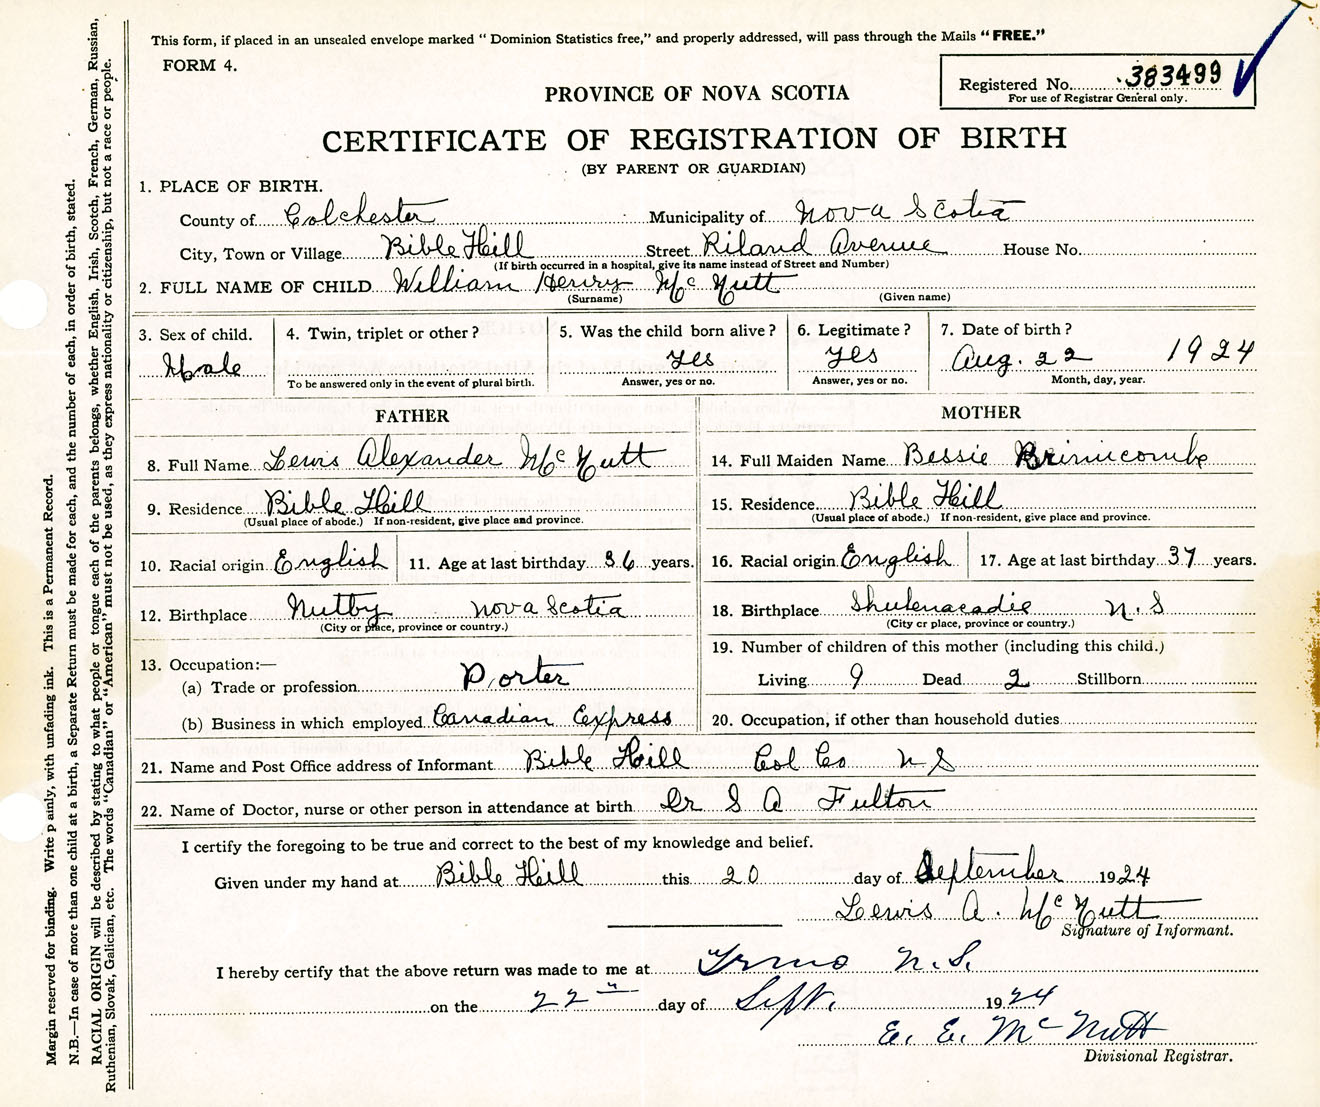 This form, if placed in an unsealed envelope marked “ Dominion Statistics free,” and properly addressed, will pass through the Mails “ FREE.”
FORM 4.
Registered No. 383499
For use of Registrar General only.
PROVINCE OF NOVA SCOTIA
CERTIFICATE OF REGISTRATION OF BIRTH
(BY PARENT OR GUARDIAN)
1. PLACE OF BIRTH.
County of Colchester Municipality of Nova Scotia
City, Town or Village Bible Hill Street Riland Avenue House No.
(If birth occurred in a hospital, give its name instead of Street and Number)
2. FULL NAME OF CHILD William Henry McNutt
(Surname) (Given name)
3. Sex of child. 4. Twin, triplet or other ? 5. Was the child born alive ? 6. Legitimate ? 7. Date of birth ?
Male yes yes Aug. 22 1924
To be answered only in the event of plural birth. Answer, yes or no. Answer, yes or no. Month, day, year.
FATHER
8. Full Name Lewis Alexander McNutt
9. Residence Bible Hill
(Usual place of abode.) If non-resident, give place and province.
10. Racial origin English 11. Age at last birthday 36 years.
12. Birthplace Nutby Nova Scotia
(City or place, province or country.)
13. Occupation:—
(a) Trade or profession Porter
(b) Business in which employed Canadian Express
MOTHER
14. Full Maiden Name Bessie Brimicombe
15. Residence Bible Hill
(Usual place of abode.) If non-resident, give place and province.
16. Racial origin English 17. Age at last birthday 37 years.
18. Birthplace Shubenacadie N. S
(City or place, province or country.)
19. Number of children of this mother (including this child.)
Living 9 Dead 2 Stillborn
20. Occupation, if other than household duties
21. Name and Post Office address of Informant Bible Hill Col Co N S
22. Name of Doctor, nurse or other person in attendance at birth Dr S A Fulton
I certify the foregoing to be true and correct to the best of my knowledge and belief.
Given under my hand at Bible Hill this 20 day of September 1924
Lewis A. McNutt
Signature of Informant.
I hereby certify that the above return was made to me at Truro N.S.
on the 22nd day of Sept. 1924
E. E. McNutt
Divisional Registrar.
Margin reserved for binding. Write plainly, with unfading ink. This is a Permanent Record.
N.B.—In case of more than one child at a birth, a Separate Return must be made for each, and the number of each, in order of birth, stated.
RACIAL ORIGIN will be described by stating to what people or tongue each of the parents belongs, whether English, Irish, Scotch, French, German, Russian,
Ruthenian, Slovak, Galician, etc. The words “Canadian” or “American” must not be used, as they express nationality or citizenship, but not a race or people.